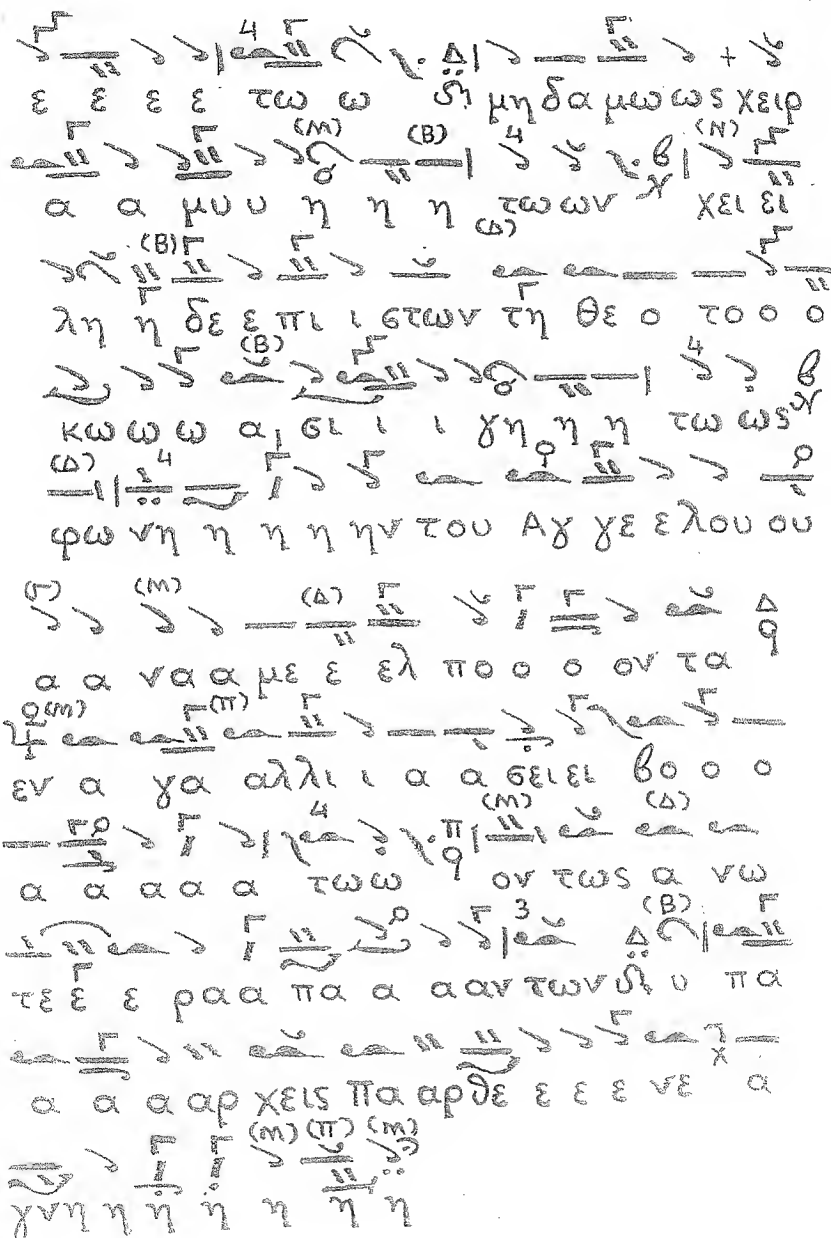 ε ε ε ε τω ω μη δα μω ως χειρ
α α μυ υ η η η τω ων χει ει
λη η δε ε πι ι στων τη θε ο το ο ο
κω ω ω α, σι ι ι ι γη η η τω ως
φω νη η η η ην του Αγ γε ε λου ου
α α να α με ε ελ πο ο ο ον τα
εν α γα αλλι ι α α σει ει βο ο ο
α α α α α τω ω ον τως α νω
τε ε ε ρα α πα α α αν των υ πα
α α α αρ χεις πα αρθε ε ε ε νε α
γνη η η η η η η